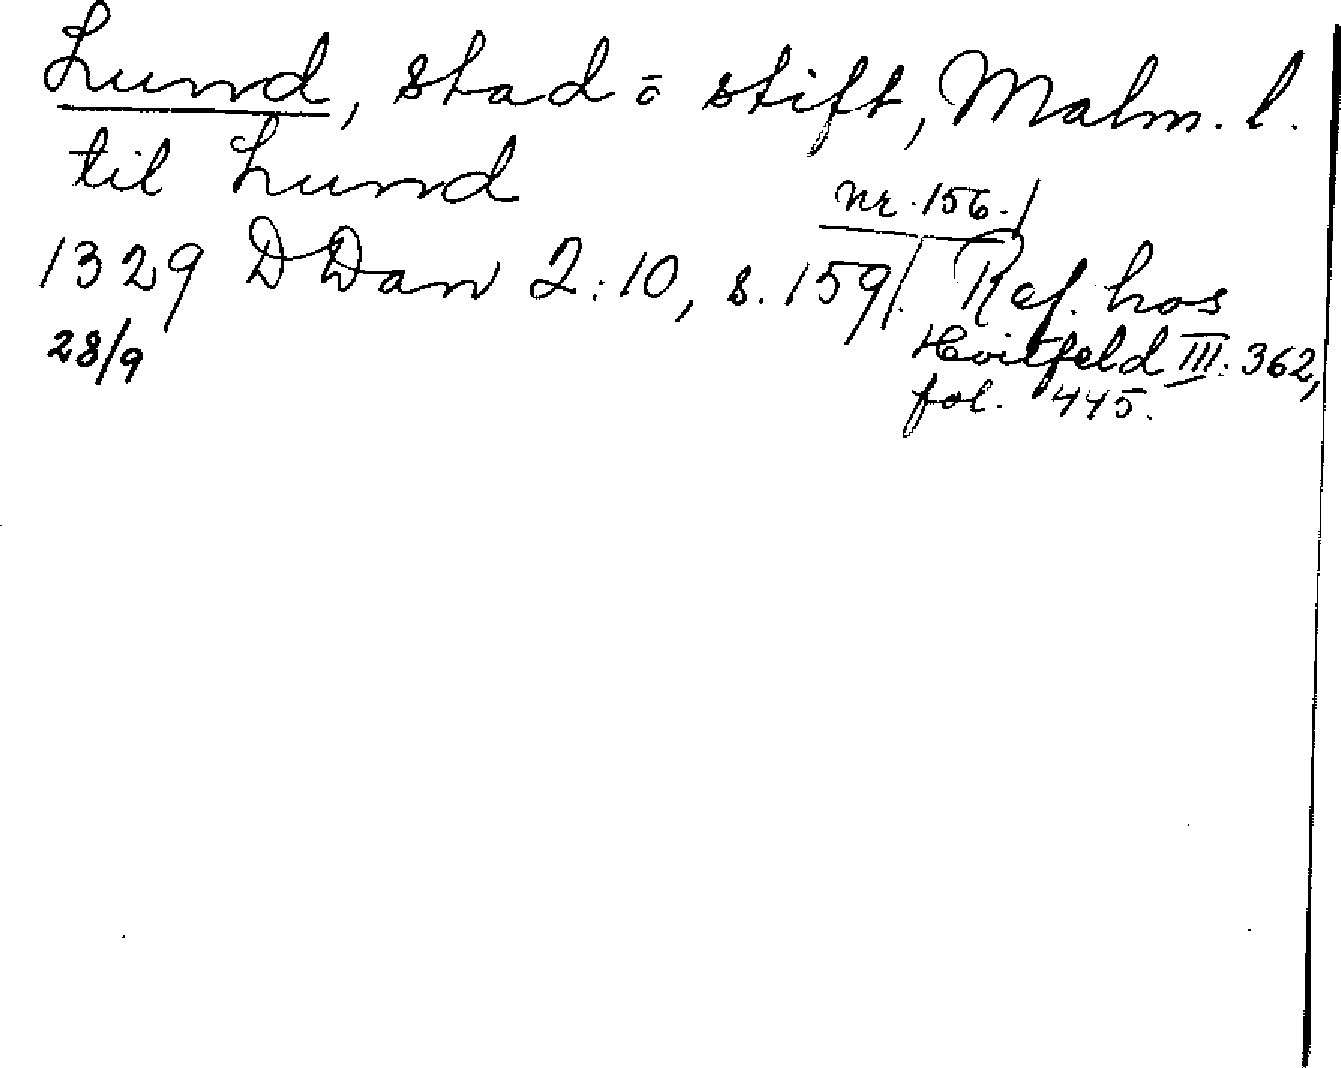 Lund, stad o stift, Malm. l.
til Lund
nr. 156./
1329 DDan 2:10, s. 159/. Ref. hos
28/9 Hvitfeld III: 362,
fol. 445.